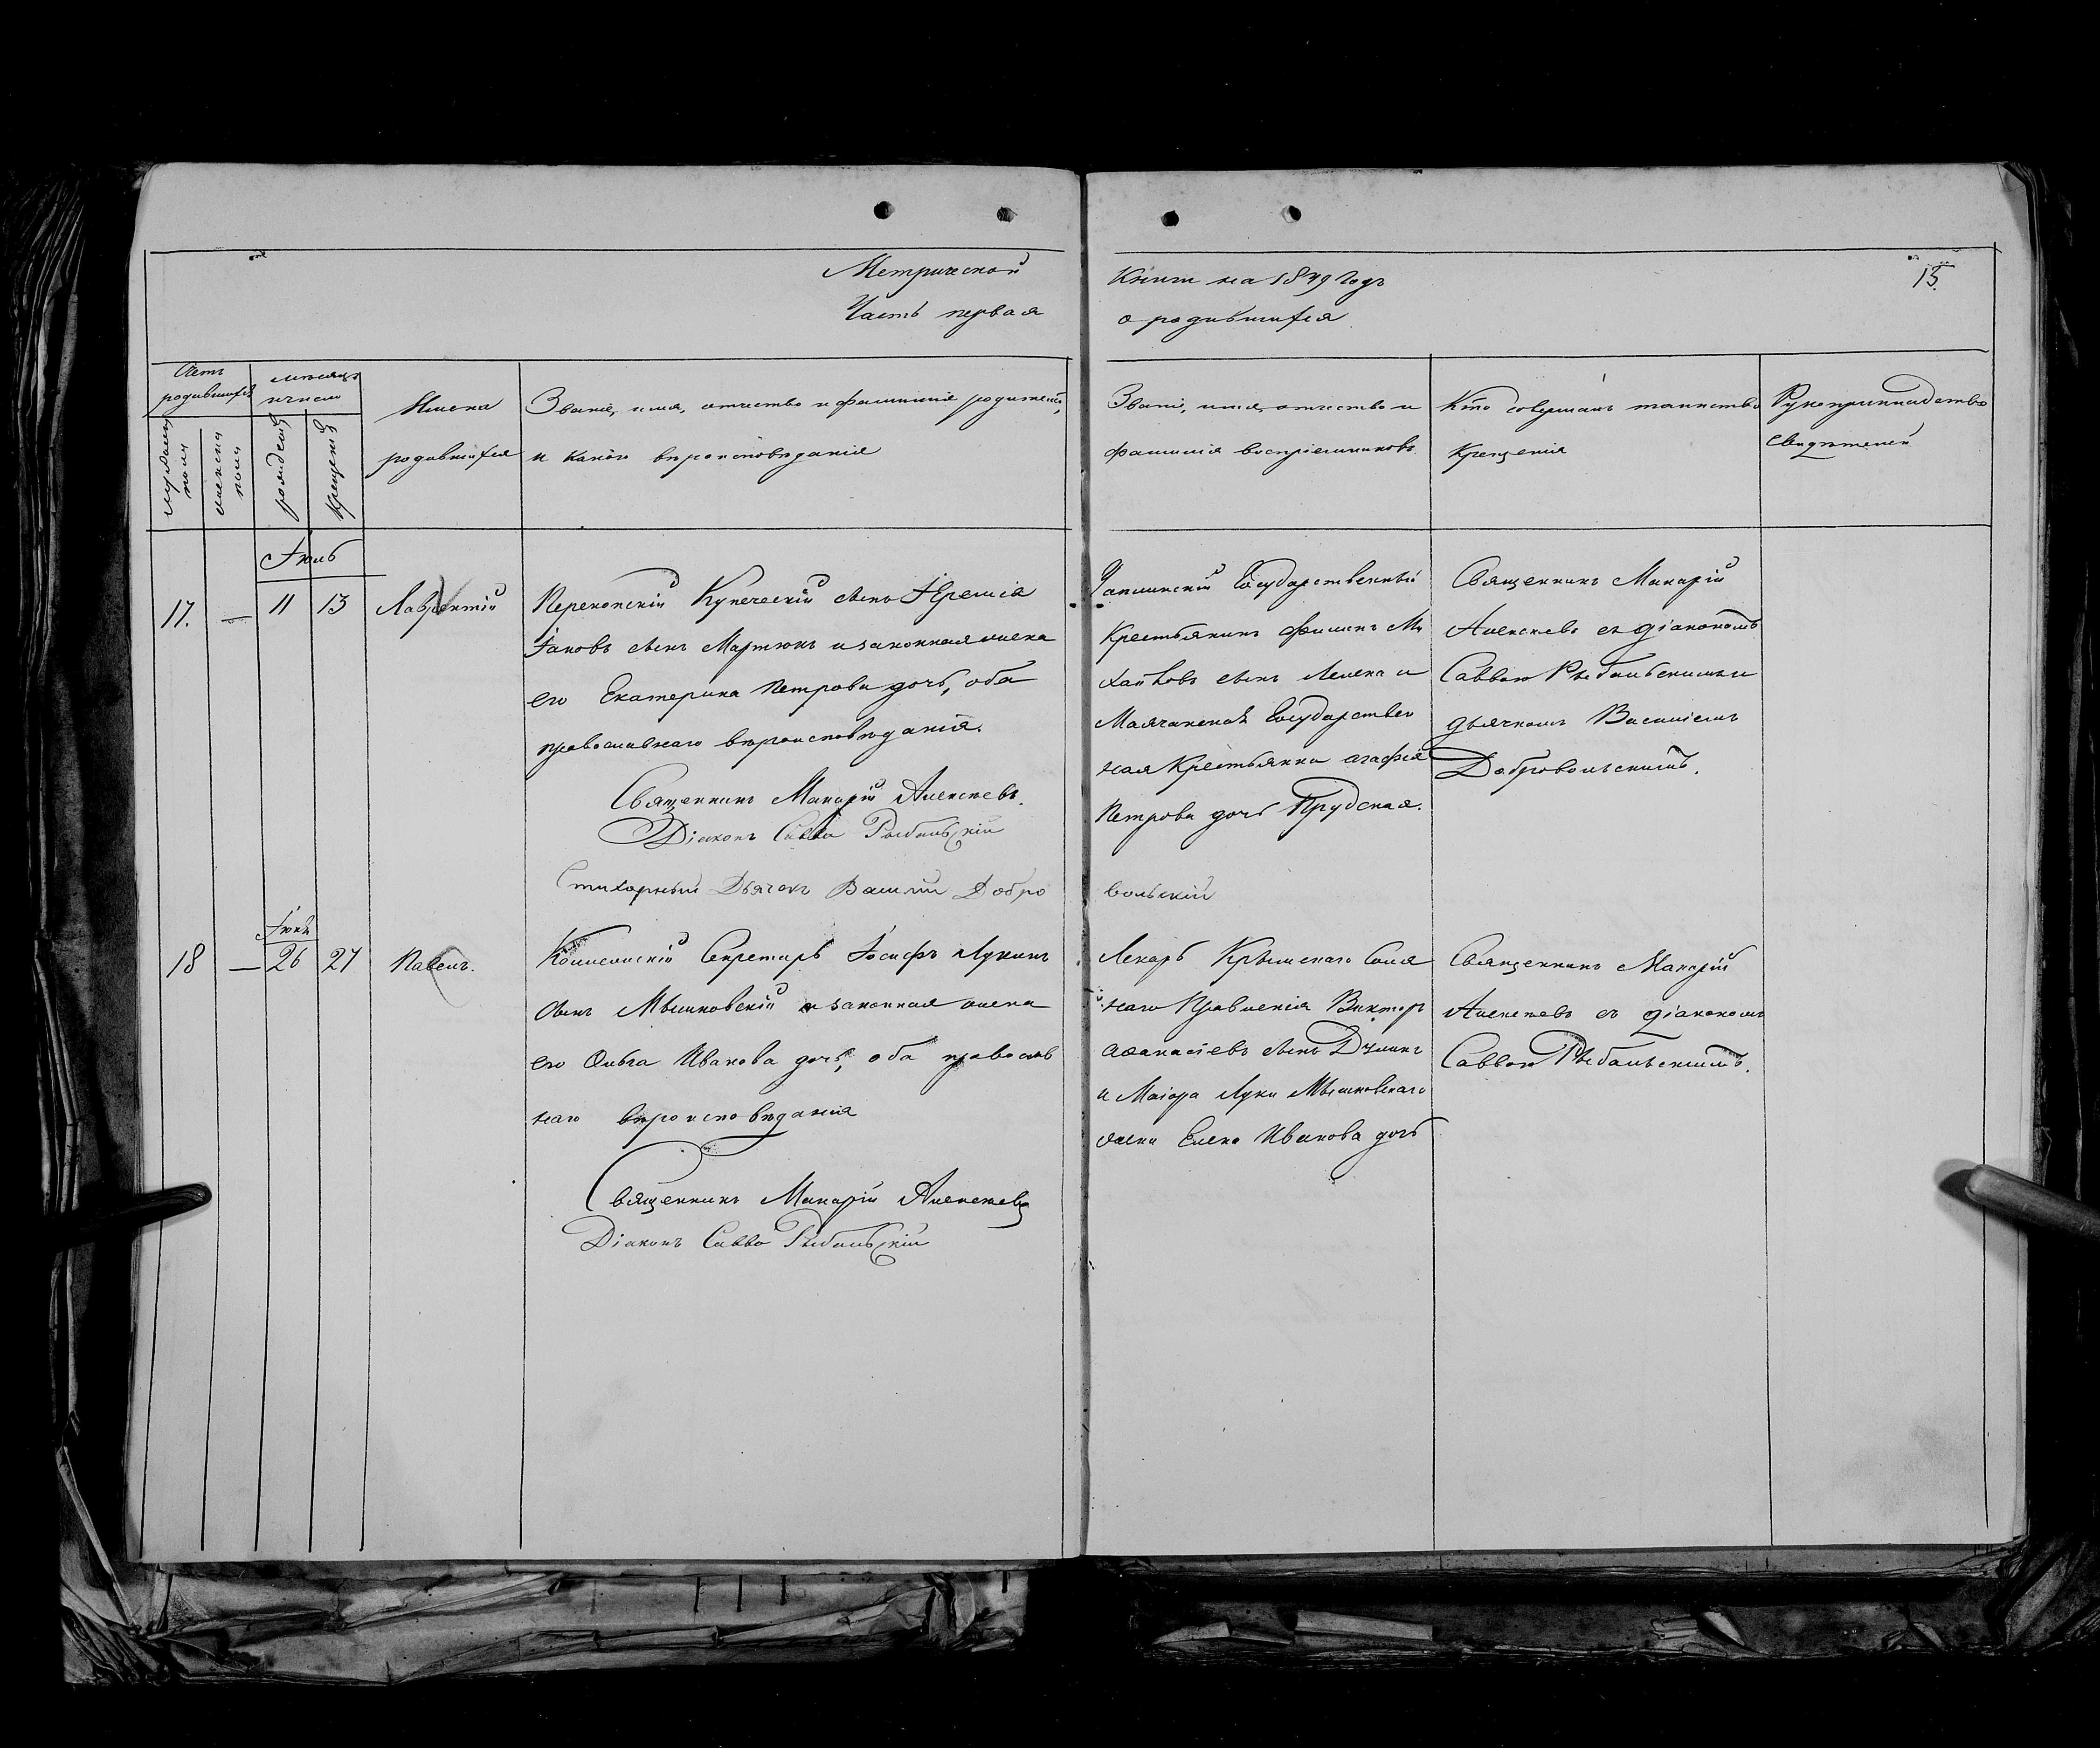 Метрической
Часть первая
Книги на 1849 Годъ
о родившихся
15.
Счетъ родившихся
мѣсяцъ и число
мужеска пола
женска пола
рожденія
крещенія
Имена
родившихся
Званіе, имя, отчество и фамилія родителей,
и какого вѣроисповѣданія
Званіе, имя, отчество и
фамилія воспріемниковъ.
Кто совершалъ таинство
Крещенія
Рукоприкладство
свидѣтелей
Іюль
17. — 11 13 Лаврентій
Перекопскій Купеческій сынъ Іеремія
Іаковъ сынъ Мартюкъ и законная жена
его Екатерина Петрова дочь, оба
православнаго вѣроисповѣданія.
Священникъ Макарій Алексѣевъ.
Діаконъ Савва Рыбальскій
Стихарный Дьячокъ Василій Добро
вольскій
Чаплинскій Государственный
Крестьянинъ Филипъ Ми
хайловъ сынъ и
Маячкинской Государствен
ная Крестьянка Агафія
Петрова дочь Прудская.
Священникъ Макарій
Алексѣевъ съ діакономъ
Саввою Рыбальскимъ и
дьячкомъ Василіемъ
Добровольскимъ.
18 — 26 27 Павелъ.
Коллежскій Секретарь Іосифъ Лукинъ
сынъ Мышковскій и законная жена
его Ольга Иванова дочь, оба православ
наго вѣроисповѣданія
Священникъ Макарій Алексѣевъ
Діаконъ Савва Рыбальскій
Лекарь Крымскаго Соля
наго Правленія Викторъ
Аѳанасіевъ сынъ
и Маіора Луки Мышковскаго
жена Елена Иванова дочь
Священникъ Макарій
Алексѣевъ съ діакономъ
Саввою Рыбальскимъ.